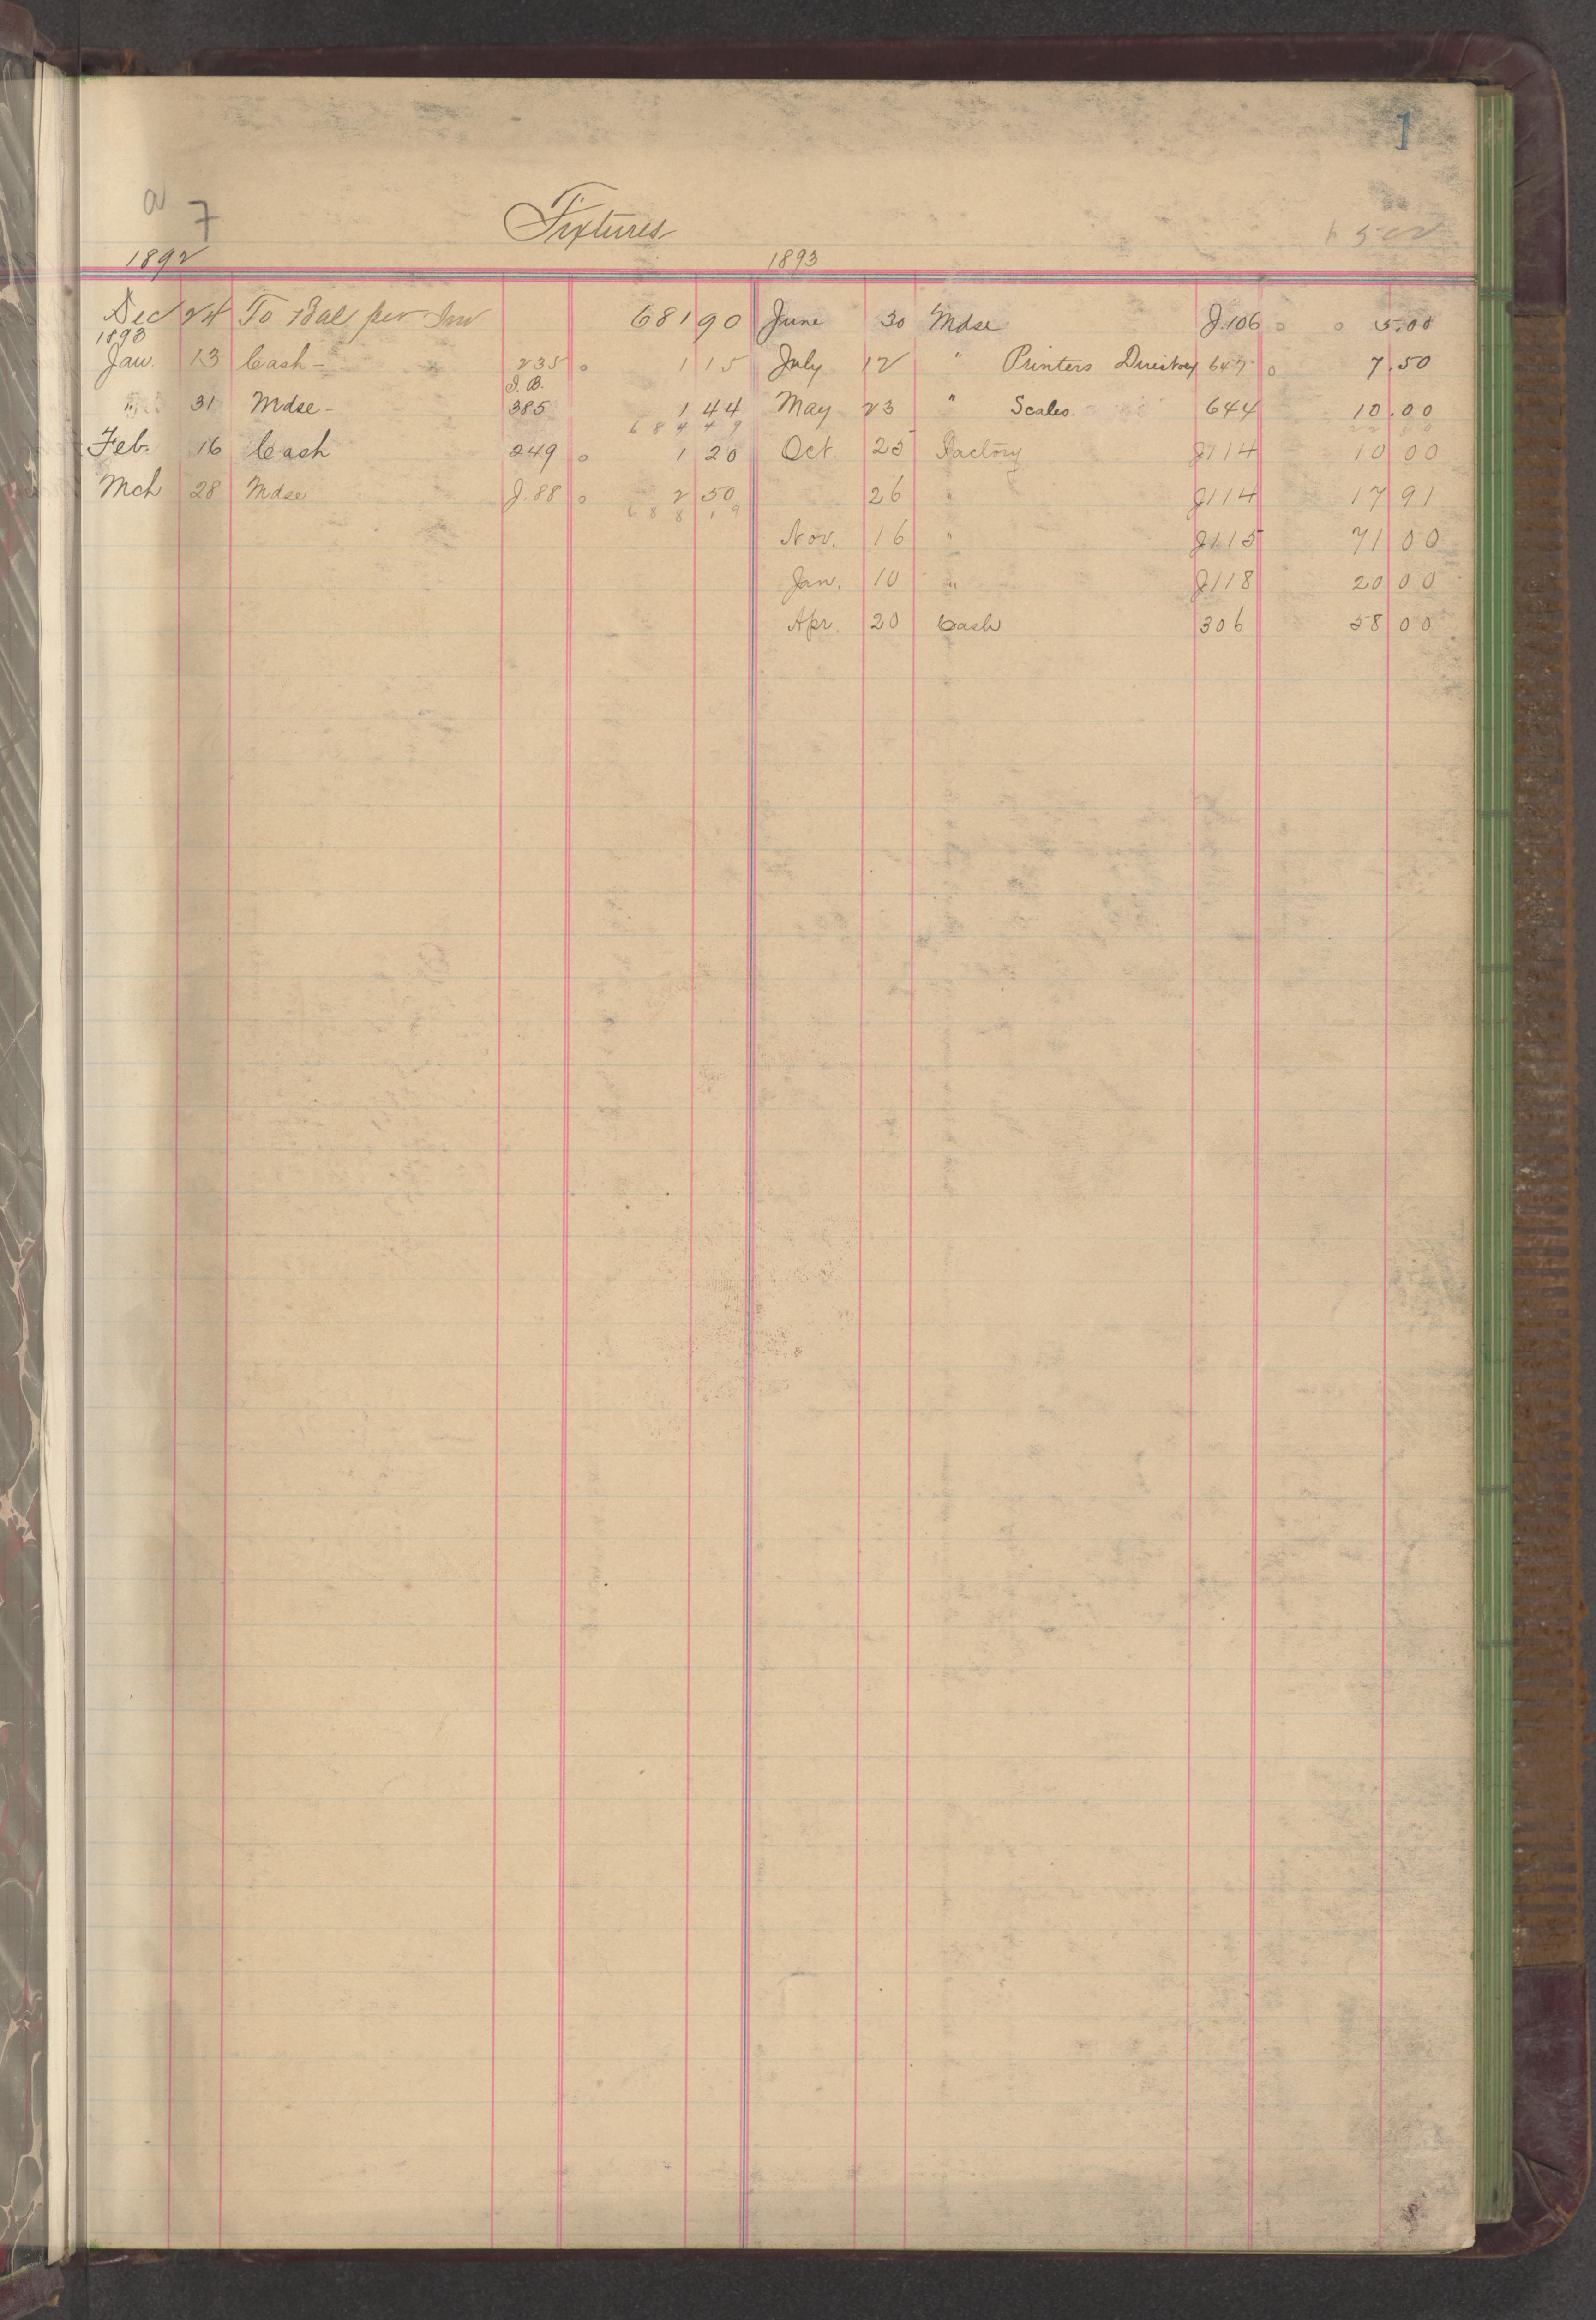 1
a 7
Fixtures
1892
1893
Dec 24 To Bal per Inv 681 90
1893
Jan. 13 Cash - 235 o 1 15
" 31 Mdse - I.B. 385 1 44
684 49
Feb. 16 Cash 249 o 1 20
Mch 28 Mdse J.88 o 2 50
688 19
June 30 Mdse J.106 o o 5.00
July 12 " Printers Directory 647 o 7.50
May 23 " Scales. 644 10.00
Oct. 25 Factory J114 10 00
26 " J114 17 91
Nov. 16 " J115 71 00
Jan. 10 " J118 20 00
Apr. 20 Cash 306 58 00